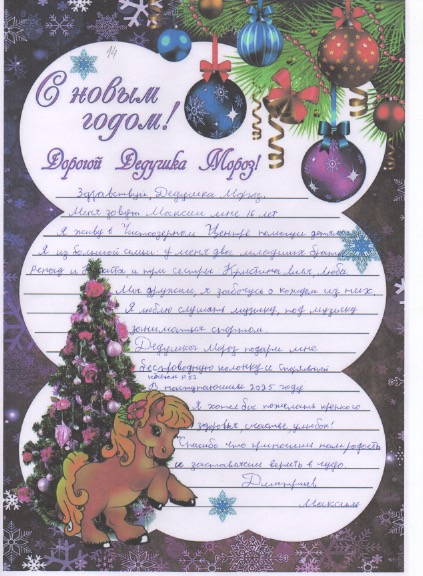 14
С новым
годом!
Дорогой Дедушка Мороз!
Здравствуй, Дедушка Мороз.
Меня зовут Максим мне 16 лет
Я живу в Чистоозерном Центре помощи детям
Я из большой семьи у меня двое младших братьев
и три сестры Кристина Лиля, Люба.
Мы дружим, я забочусь о каждом из них.
Я люблю слушать музыку, под музыку
заниматься спортом.
Дедушка Мороз подари мне
беспроводную колонку и спортивный
костюм р.52
В наступающем 2025 году
Я хотел бы пожелать крепкого
здоровья, счастье, улыбок!
Спасибо что приносишь нам радость
и заставляешь верить в чудо.
Дмитриев
Максим